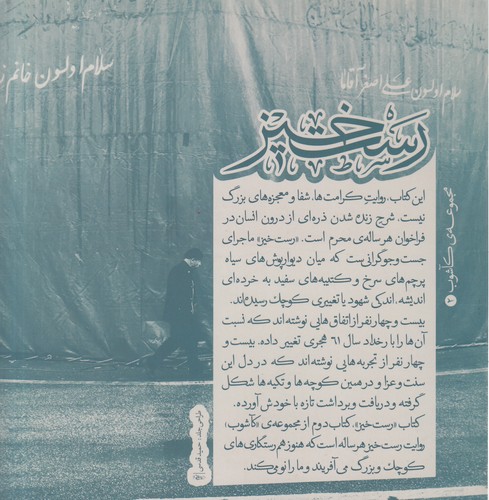 سلام اولسون علی اصغر آقاما
سلام اولسون خانم
رست‌خیز
این کتاب، روایتِ کرامت‌ها، شفا و معجزه‌های بزرگ
نیست. شرح زنده شدن ذره‌ای از درون انسان در
فراخوان هرساله‌ی محرم است. «رست‌خیز» ماجرای
جست‌وجوگرانی‌ست که میان دیوارپوش‌های سیاه
پرچم‌های سرخ و کتیبه‌های سفید به خرده‌ای
اندیشه، اندکی شهود یا تغییری کوچک رسیده‌اند.
بیست و چهار نفر از اتفاق‌هایی نوشته‌اند که نسبت
آن‌ها را با رخداد سال ۶۱ هجری تغییر داده. بیست و
چهار نفر از تجربه‌هایی نوشته‌اند که در دل این
سنت و عزا و در همین کوچه‌ها و تکیه‌ها شکل
گرفته و دریافت و برداشت تازه با خودش آورده.
کتاب «رست‌خیز»، کتاب دوم از مجموعه‌ی «کآشوب»
روایت رست‌خیز هرساله است که هنوز هم رستگاری‌های
کوچک و بزرگ می‌آفریند و ما را نو می‌کند.
مجموعه‌ی کآشوب ۲
طراحی جلد: حمید قدسی